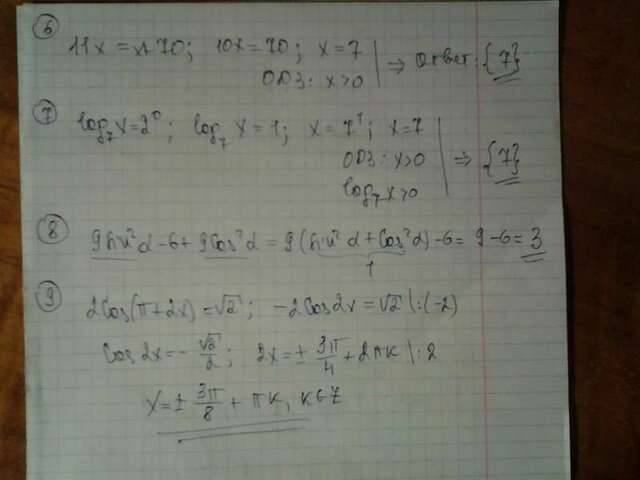 ⑥
11x = x+70; 10x = 70; x = 7
ОДЗ: x>0 ⇒ Ответ: {7}
⑦
log₇x = 2⁰; log₇ x = 1; x = 7¹; x = 7
ОДЗ: x>0 ⇒ {7}
log₇x>0
⑧
9sin²α - 6 + 9cos²α = 9(sin²α + cos²α) - 6 = 9 - 6 = 3
1
⑨
2cos(π+2x) = √2; -2cos2x = √2 |:(-2)
cos2x = -√2/2; 2x = ± 3π/4 + 2πk |:2
x = ± 3π/8 + πk, k∈Z